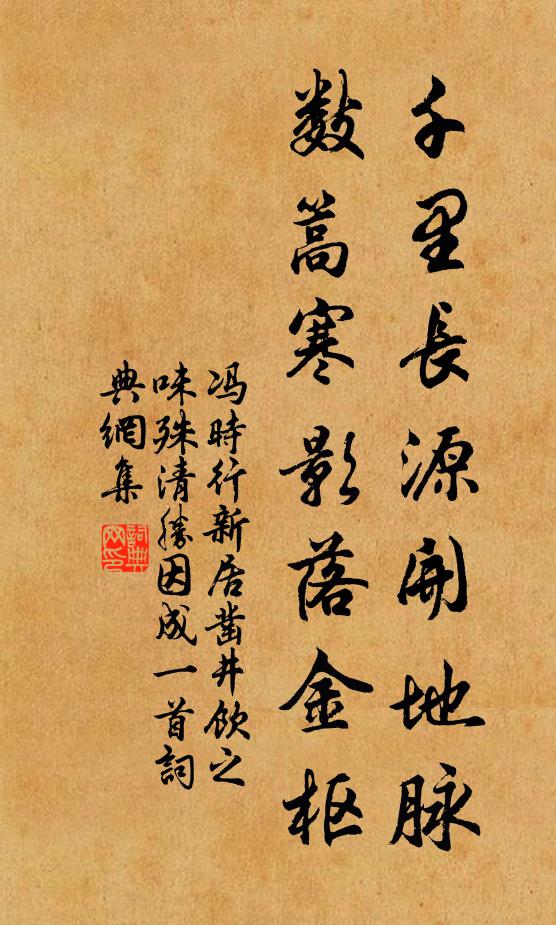 千里長源開地脉
數篙寒影落金枢
冯時行新居凿井飲之
味殊清勝因成一首詞
典網集
詞典网印